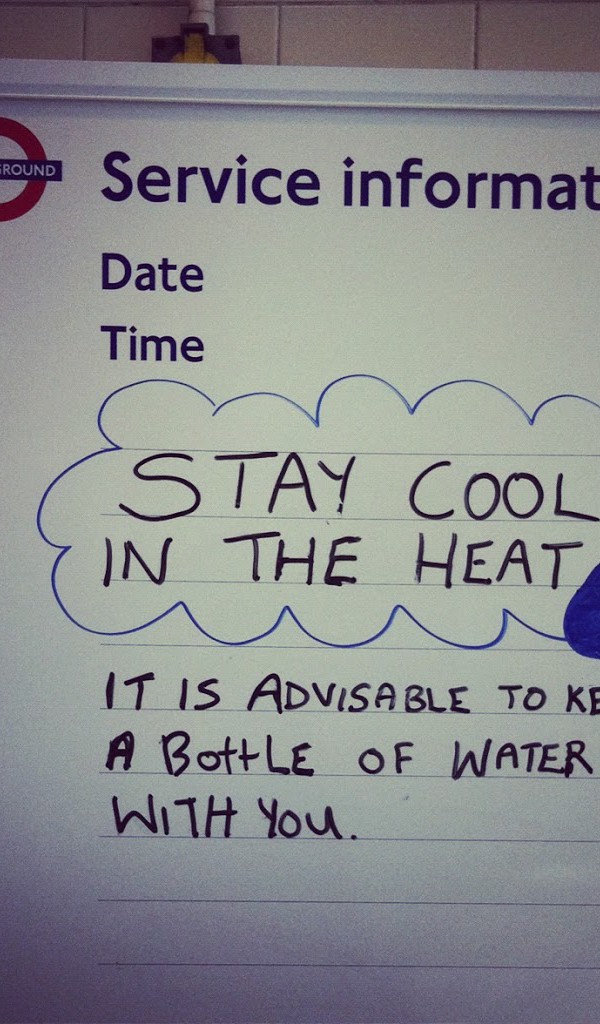 GROUND
Service informat
Date
Time
STAY COOL
IN THE HEAT
IT IS ADVISABLE TO KE
A BottLE OF WATER
WITH YOU.